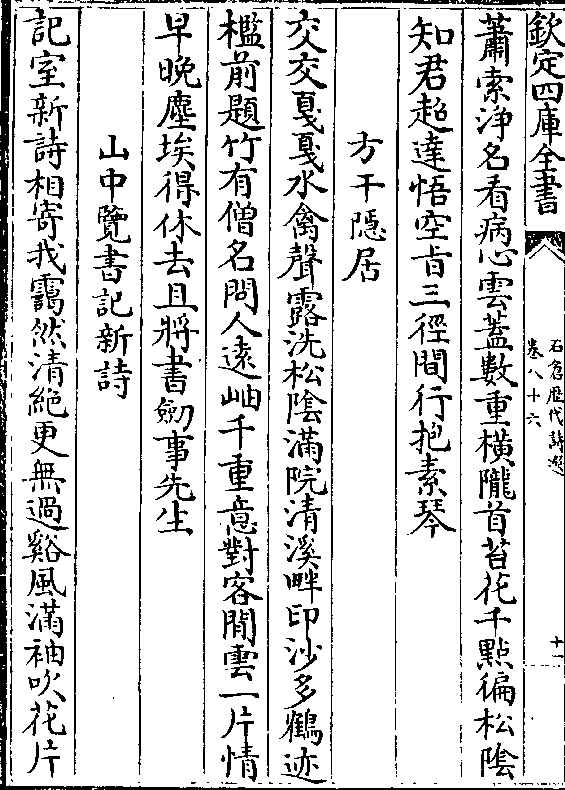 欽定四庫全書
石倉歷代詩選
卷八十六
十一
蕭索淨名看病心雲蓋數重橫隴首苔花千點徧松陰
知君超達悟空旨三徑閒行抱素琴
方干隱居
交交戛戛水禽聲露洗松陰滿院清溪畔印沙多鶴迹
檻前題竹有僧名問人遠岫千重意對客閒雲一片情
早晚塵埃得休去且將書劒事先生
山中覽書記新詩
記室新詩相寄我靄然清絶更無過谿風滿袖吹花片